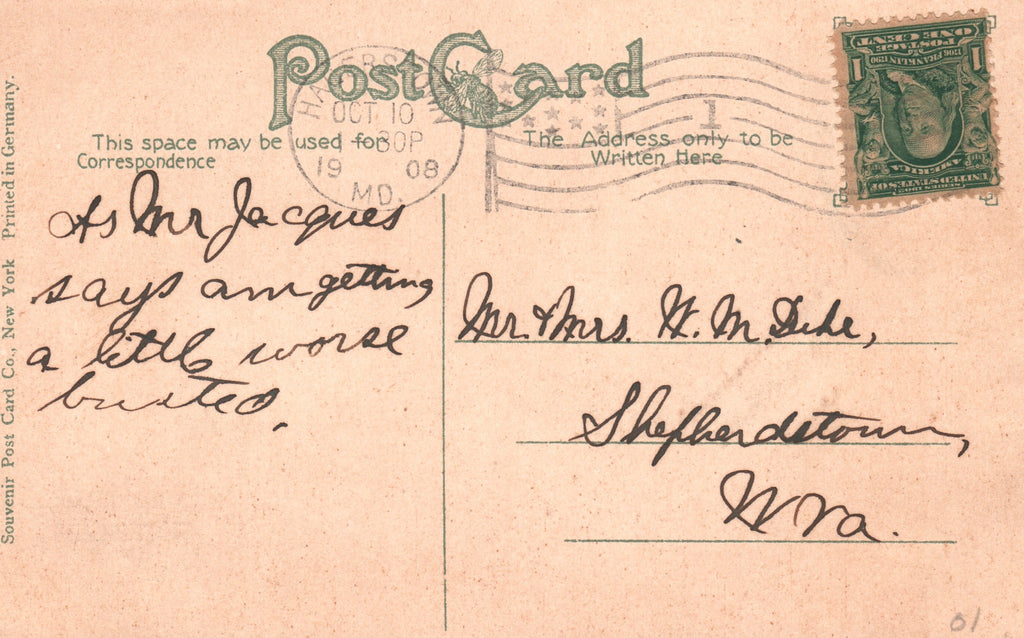 Post Card
This space may be used for
Correspondence
The Address only to be
Written Here
HAGERSTOWN
OCT 10
30P
19 08
MD.
1
SERIES 1902
UNITED STATES OF AMERICA
1706 FRANKLIN 1790
POSTAGE
1 ONE CENT 1
As Mr Jacques
says am getting
a little worse
busted.
Mr. & Mrs. H. M.
Shepherdstown,
W Va.
Souvenir Post Card Co., New York Printed in Germany.
01